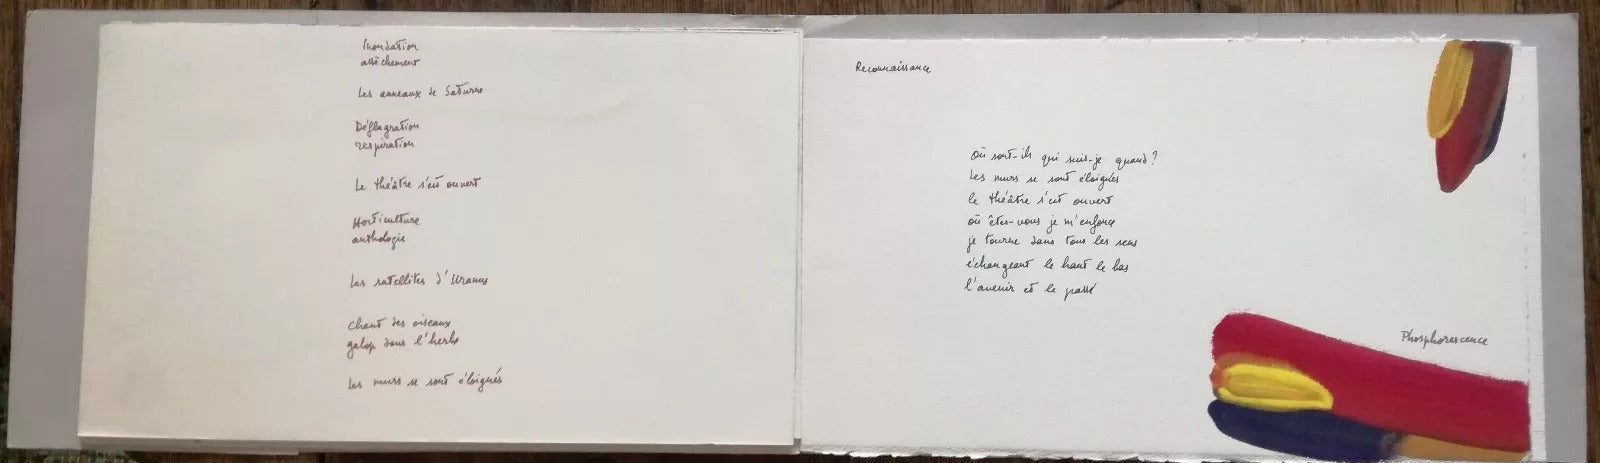 Inondation
assèchement
Les anneaux de Saturne
Déflagration
respiration
Le théâtre s'est ouvert
Horticulture
anthologie
Les satellites d'Uranus
Chant des oiseaux
galop dans l'herbe
Les murs se sont éloignés
Reconnaissance
Où sont-ils qui suis-je quand?
Les murs se sont éloignés
le théâtre s'est ouvert
où êtes-vous je m'enfonce
je tourne dans tous les sens
échangeant le haut le bas
l'avenir et le passé
Phosphorescence